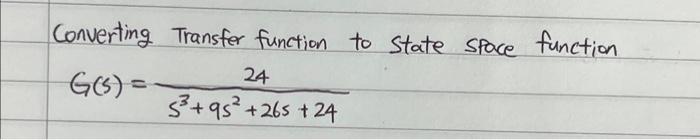 Converting Transfer function to state space function
G(s) = 24
s³ + 9s² + 26s + 24